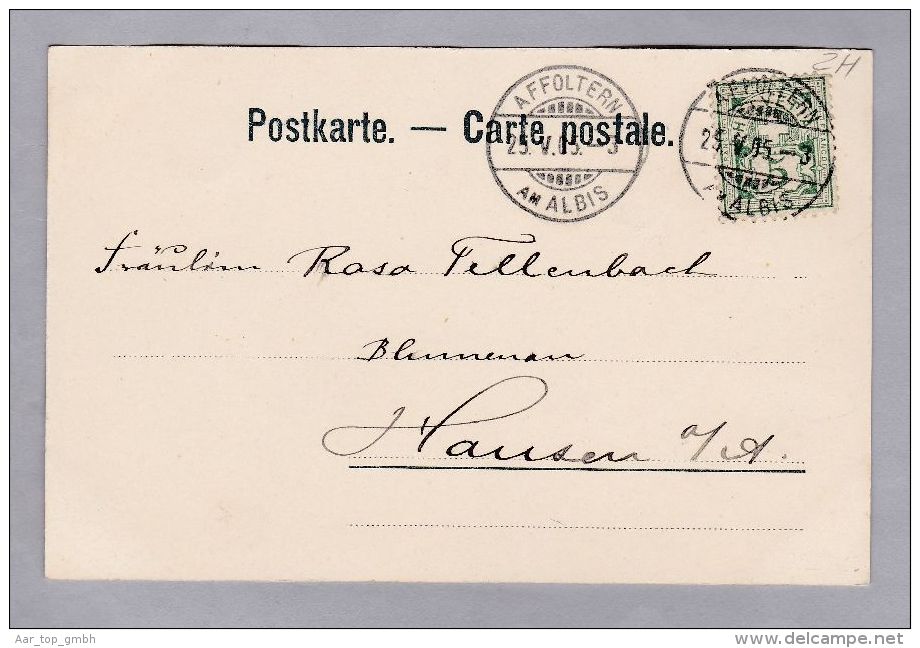 ZH
Postkarte. — Carte postale.
AFFOLTERN
25.V.05.–3
AM ALBIS
AFFOLTERN
25.V.05.–3
AM ALBIS
5
Fräulein Rosa Fellenbach
Blumenau
Hausen a/A.
Aar_top_gmbh
www.delcampe.net